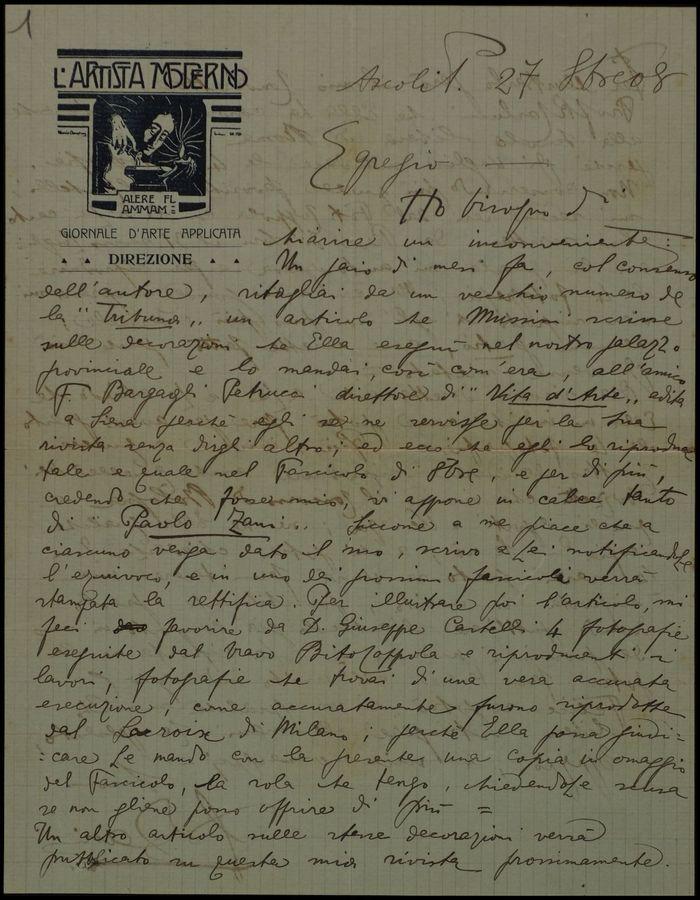 1
L'ARTISTA MODERNO
ALERE FL
AMMAM
GIORNALE D'ARTE APPLICATA
DIREZIONE
Ascoli P. 27 8bre 08
Egregio
Ho bisogno di
chiarire un inconveniente:
Un paio di mesi fa, col consenso
dell'autore, ritagliai da un vecchio numero de
la "Tribuna" un articolo che Mussini scrisse
sulle decorazioni che Ella eseguì nel nostro palazzo
provinciale e lo mandai, così com'era, all'amico
F. Bargagli Petrucci direttore di "Vita d'Arte" edita
a Siena perchè egli se ne servisse per la sua
rivista senza dirgli altro; ed ecco che egli lo riproduce
tale e quale nel Fascicolo di 8bre, e per di più,
credendo che fosse mio, vi appone in calce tanto
di Paolo Zani. Siccome a me piace che a
ciascuno venga dato il suo, scrivo a Lei notificandole
l'equivoco, e in uno dei prossimi fascicoli verrà
stampata la rettifica. Per illustrare poi l'articolo, mi
feci favorire da D. Giuseppe Castelli 4 fotografie
eseguite dal bravo e riproducenti i
lavori, fotografie che trovai di una vera accurata
esecuzione, come accuratamente furono riprodotte
dal Lacroix di Milano; perchè Ella possa giudi=
=care Le mando con la presente una copia in omaggio
del Fascicolo, la sola che tengo, chiedendole scusa
se non gliene posso offrire di più =
Un altro articolo sulle stesse decorazioni verrà
pubblicato su questa mia rivista prossimamente.